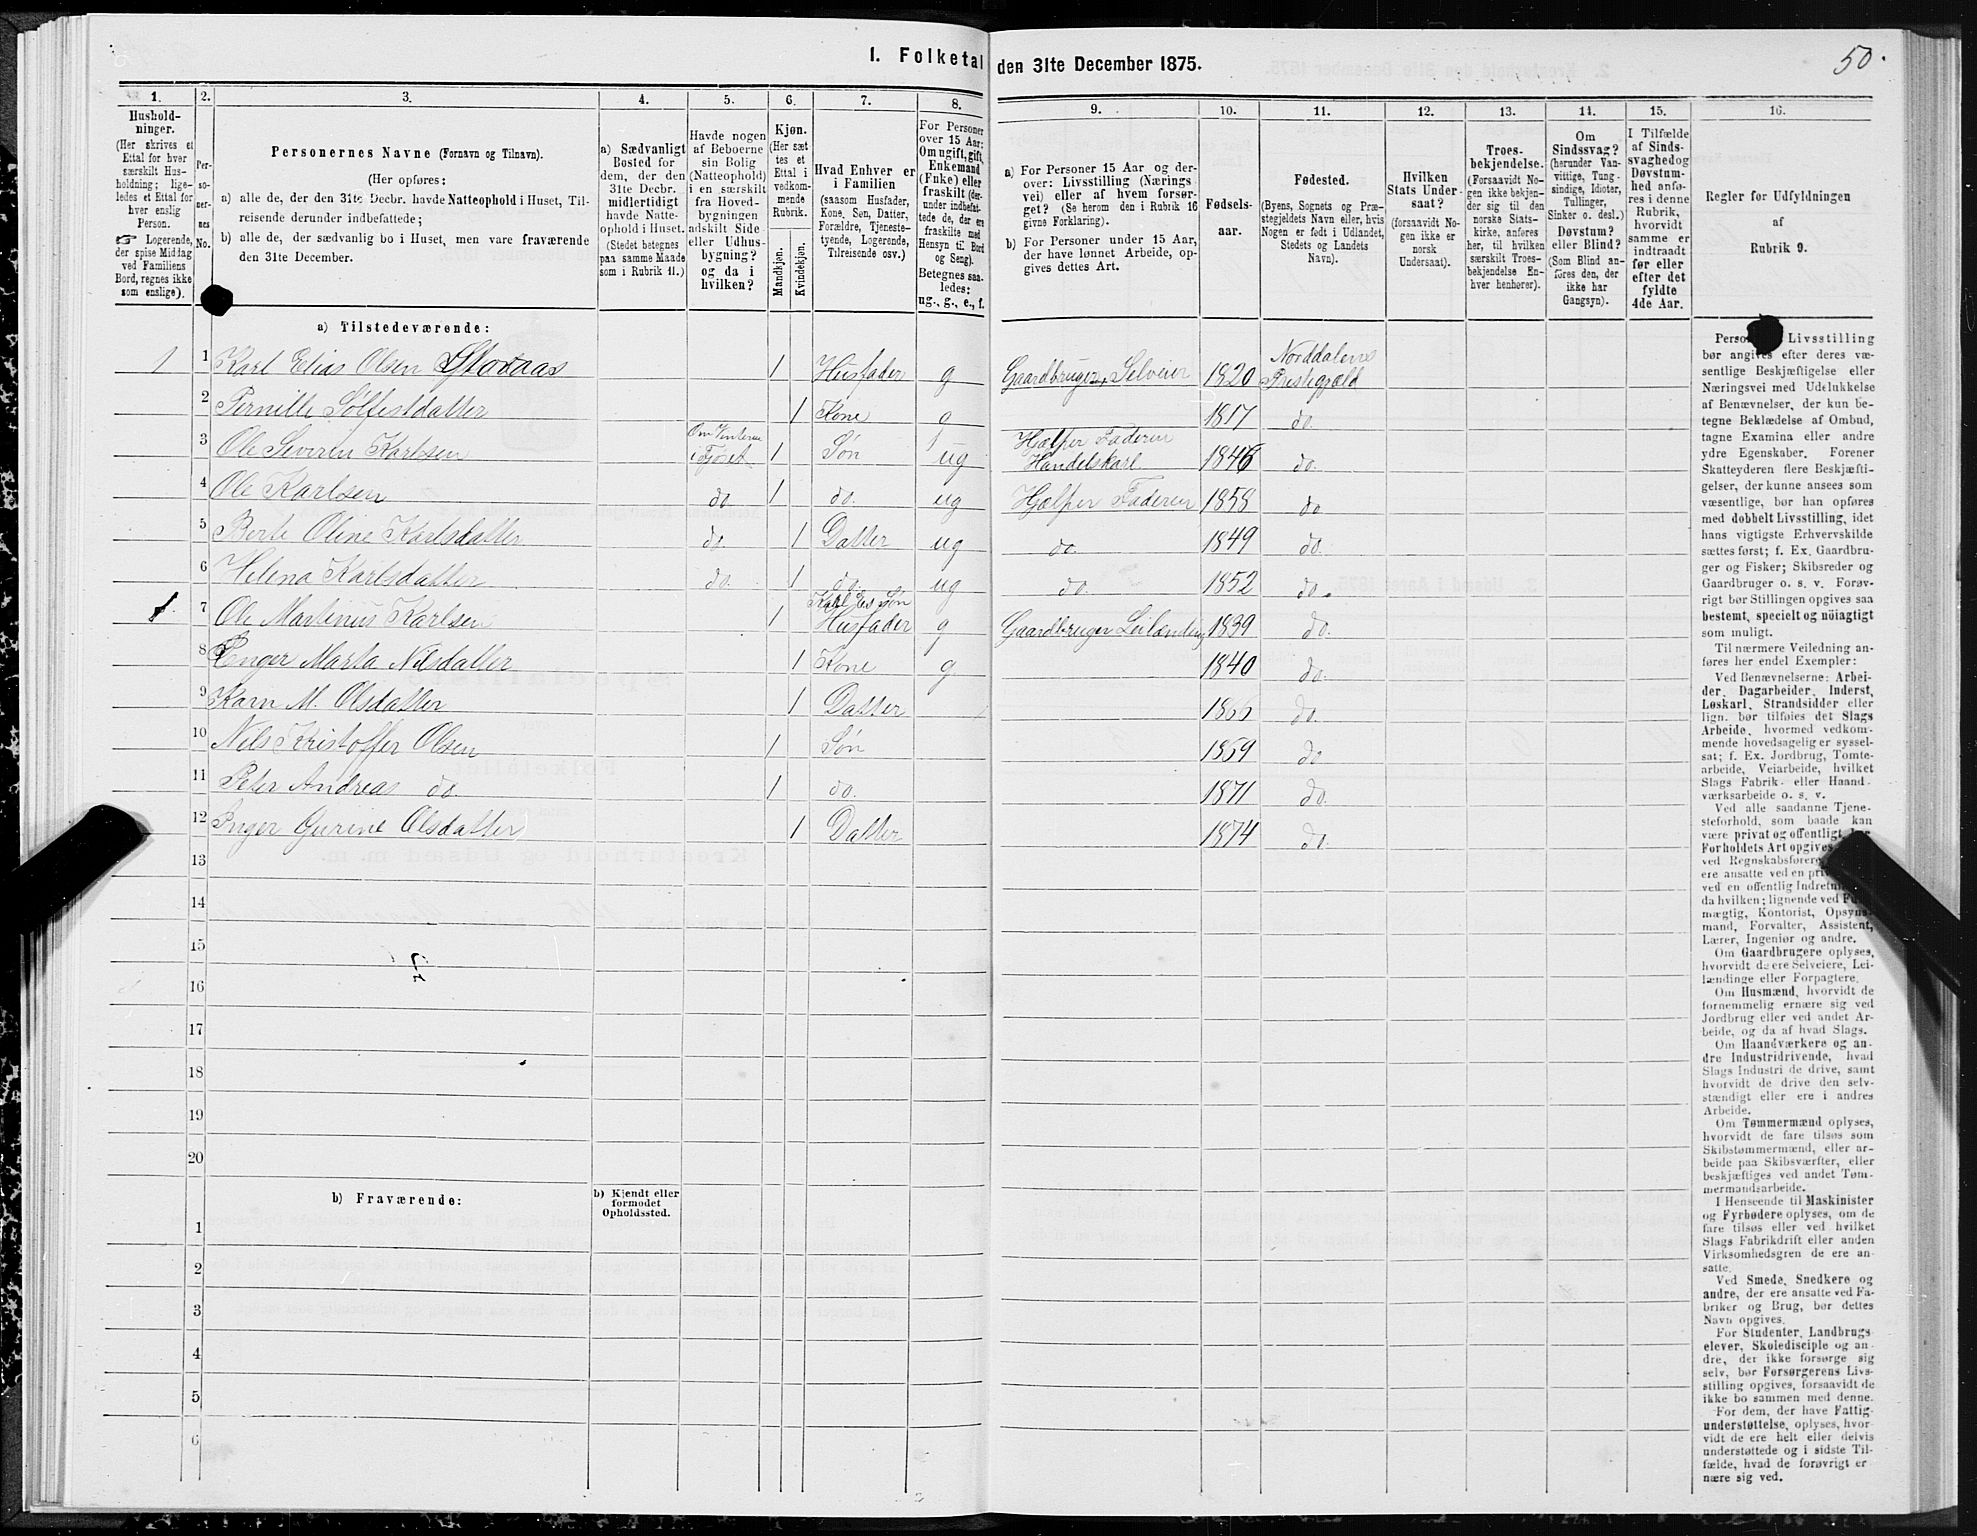 50.
I. Folketal den 31te December 1875.
1. 2. 3. 4. 5. 6. 7. 8. 9. 10. 11. 12. 13. 14. 15. 16.
Hushold-
ninger.
(Her skrives et
Ettal for hver
særskilt Hus-
holdning; lige-
ledes et Ettal for
hver enslig
Person.
☞ Logerende,
der spise Middag
ved Familiens
Bord, regnes ikke
som enslige).
Per-
so-
ner-
nes
No.
Personernes Navne (Fornavn og Tilnavn).
(Her opføres:
a) alle de, der den 31te Decbr. havde Natteophold i Huset, Til-
reisende derunder indbefattede;
b) alle de, der sædvanlig bo i Huset, men vare fraværende
den 31te December.
a) Sædvanligt
Bosted for
dem, der den
31te Decbr.
midlertidigt
havde Natte-
ophold i Huset.
(Stedet betegnes
paa samme Maade
som i Rubrik 11.)
Havde nogen
af Beboerne
sin Bolig
(Natteophold)
i en særskilt
fra Hoved-
bygningen
adskilt Side
eller Udhus-
bygning?
og da i
hvilken?
Kjøn.
(Her sæt
tes et
Ettal i
vedkom-
mende
Rubrik.
Mandkjøn.
Kvindekjøn.
Hvad Enhver er
i Familien
(saasom Husfader,
Kone, Søn, Datter,
Forældre, Tjeneste-
tyende, Logerende,
Tilreisende osv.)
For Personer
over 15 Aar:
Om ugift, gift,
Enkemand
(Enke) eller
fraskilt (der-
under indbefat-
tede de, der ere
fraskilte med
Hensyn til Bord
og Seng).
Betegnes saa-
ledes:
ug., g., e., f.
a) For Personer 15 Aar og der-
over: Livsstilling (Nærings
vei) eller af hvem forsør-
get? (Se herom den i Rubrik 16
givne Forklaring).
b) For Personer under 15 Aar,
der have lønnet Arbeide, op-
gives dettes Art.
Fødsels-
aar.
Fødested.
(Byens, Sognets og Præ-
stegjeldets Navn eller, hvis
Nogen er født i Udlandet,
Stedets og Landets
Navn).
Hvilken
Stats Under-
saat?
(forsaavidt No-
gen ikke er
norsk
Undersaat).
Troes-
bekjendelse.
(Forsaavidt No-
gen ikke bekjen-
der sig til den
norske Stats-
kirke, anføres
her, til hvilken
særskilt Troes-
bekjendelse En-
hver henhører).
Om
Sindssvag?
(herunder Van-
vittige, Tung-
sindige, Idioter,
Tullinger,
Sinker o. desl.)
Døvstum?
eller Blind?
(Som Blind an-
føres den, der
ikke har
Gangsyn).
I Tilfælde
af Sinds-
svaghed og
Døvstum-
hed anfø-
res i denne
Rubrik,
hvorvidt
samme er
indtraadt
før eller
efter det
fyldte
4de Aar.
Regler for Udfyldningen
af
Rubrik 9.
a) Tilstedeværende:
1 1 Karl Elias Olsen Storaas 1 Husfader g Gaardbruger Selveier 1820 Norddalens Prestegjæld
2 Pernille Solfestdatter 1 Kone g 1817 do.
3 Ole Severen Karlsen Om Vinteren i Fjøset 1 Søn ug Hjælper Faderen Handelskarl 1846 do.
4 Ole Karlsen do 1 do. ug Hjælper Faderen 1858 do
5 Berte Oline Karlsdatter do 1 Datter ug do. 1849 do.
6 Helena Karlsdatter do. 1 do. ug do. 1852 do.
1. 7 Ole Martinus Karlsen 1 Husfader g Gaardbruger Leilænding 1839 do.
8 Inger Marta Nilsdatter 1 Kone g 1840 do.
9 Karn M. Olsdatter 1 Datter 1866 do.
10 Nils Kristoffer Olsen 1 Søn 1859 do
11 Peter Andreas do. 1 do. 1871 do.
12 Inger Gurine Olsdatter 1 Datter 1874 do.
13
14
15
16
17
18
19
20
b) Fraværende:
b) Kjendt eller
formodet
Opholdssted.
1
2
3
4
5
6
Livsstilling
bør angives efter deres væ-
sentlige Beskjæftigelse eller
Næringsvei med Udelukkelse
af Benævnelser, der kun be-
tegne Beklædelse af Ombud,
tagne Examina eller andre
ydre Egenskaber. Forener
Skatteyderen flere Beskjæfti-
gelser, der kunne ansees som
væsentlige, bør han opføres
med dobbelt Livsstilling, idet
hans vigtigste Erhvervskilde
sættes først; f. Ex. Gaardbru-
ger og Fisker; Skibsreder og
Gaardbruger o. s. v. Forøv-
rigt bør Stillingen opgives saa
bestemt, specielt og nöiagtigt
som muligt.
Til nærmere Veiledning an-
føres her endel Exempler:
Ved Benævnelserne: Arbei-
der, Dagarbeider, Inderst,
Løskarl, Strandsidder eller
lign. bør tilføies det Slags
Arbeide, hvormed vedkom-
mende hovedsagelig er syssel-
sat; f. Ex. Jordbrug, Tomte-
arbeide, Veiarbeide, hvilket
Slags Fabrik- eller Haand-
værksarbeide o. s. v.
Ved alle saadanne Tjene-
steforhold, som baade kan
være privat og offentligt, bør
Forholdets Art opgives,
ved Regnskabsførere,
ere ansatte ved en
ved en offentlig
da hvilken; lignende ved
mægtig, Kontorist, Opsyns-
mand, Forvalter, Assistent,
Lærer, Ingeniør og andre.
Om Gaardbrugere oplyses,
hvorvidt de ere Selveiere, Lei-
lændinge eller Forpagtere.
Om Husmænd, hvorvidt de
fornemmelig ernære sig ved
Jordbrug eller ved andet Ar-
beide, og da af hvad Slags.
Om Haandværkere og an-
dre Industridrivende, hvad
Slags Industri de drive, samt
hvorvidt de drive den selv-
stændigt eller ere i andres
Arbeide.
Om Tømmermænd oplyses,
hvorvidt de fare tilsøs som
Skibstømmermænd, eller ar-
beide paa Skibsværfter, eller
beskjæftiges ved andet Tøm-
mermandsarbeide.
I Henseende til Maskinister
og Fyrbødere oplyses, om de
fare tilsøs eller ved hvilket
Slags Fabrikdrift eller anden
Virksomhedsgren de ere an-
satte.
Ved Smede, Snedkere og
andre, der ere ansatte ved Fa-
briker og Brug, bør dettes
Navn opgives.
For Studenter, Landbrugs-
elever, Skoledisciple og an-
dre, der ikke forsørge sig
selv, bør Forsørgerens Livs-
stilling opgives, forsaavidt de
ikke bo sammen med denne.
For dem, der have Fattig-
understøttelse, oplyses, hvor-
vidt de ere helt eller delvis
understøttede og i sidste Til-
fælde, hvad de forøvrigt er
nære sig ved.